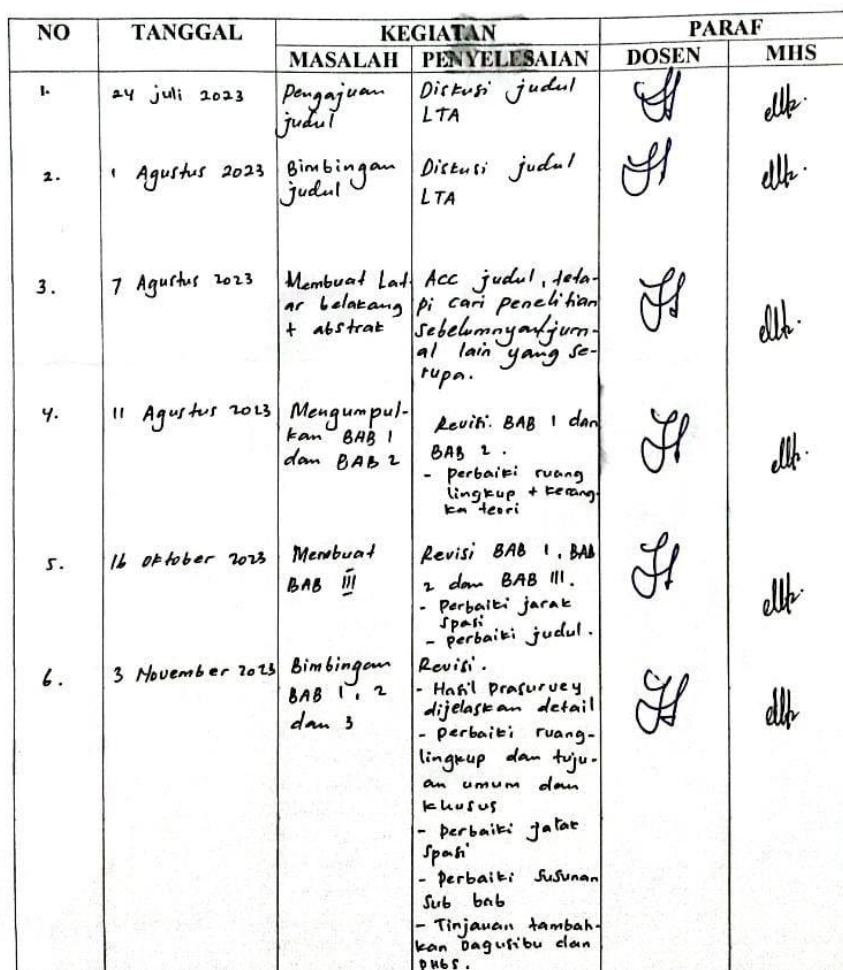 NO TANGGAL KEGIATAN PARAF
MASALAH PENYELESAIAN DOSEN MHS
1. 24 juli 2023 Pengajuan judul Diskusi judul LTA
2. 1 Agustus 2023 Bimbingan judul Diskusi judul LTA
3. 7 Agustus 2023 Membuat Lat-
ar belakang
+ abstrak
Acc judul, teta-
pi cari penelitian
sebelumnya/jurn-
al lain yang se-
rupa.
4. 11 Agustus 2023 Mengumpul-
kan BAB 1
dan BAB 2
Revisi. BAB 1 dan
BAB 2.
- perbaiki ruang
lingkup + kerang-
ka teori
5. 16 oktober 2023 Membuat
BAB III
Revisi BAB 1, BAB
2 dan BAB III.
- Perbaiki jarak
spasi
- perbaiki judul.
6. 3 November 2023 Bimbingan
BAB 1, 2
dan 3
Revisi.
- Hasil prasurvey
dijelaskan detail
- perbaiki ruang-
lingkup dan tuju-
an umum dan
khusus
- perbaiki jarak
spasi
- perbaiki susunan
sub bab
- Tinjauan tambah-
kan Dagusibu dan
PHBS.